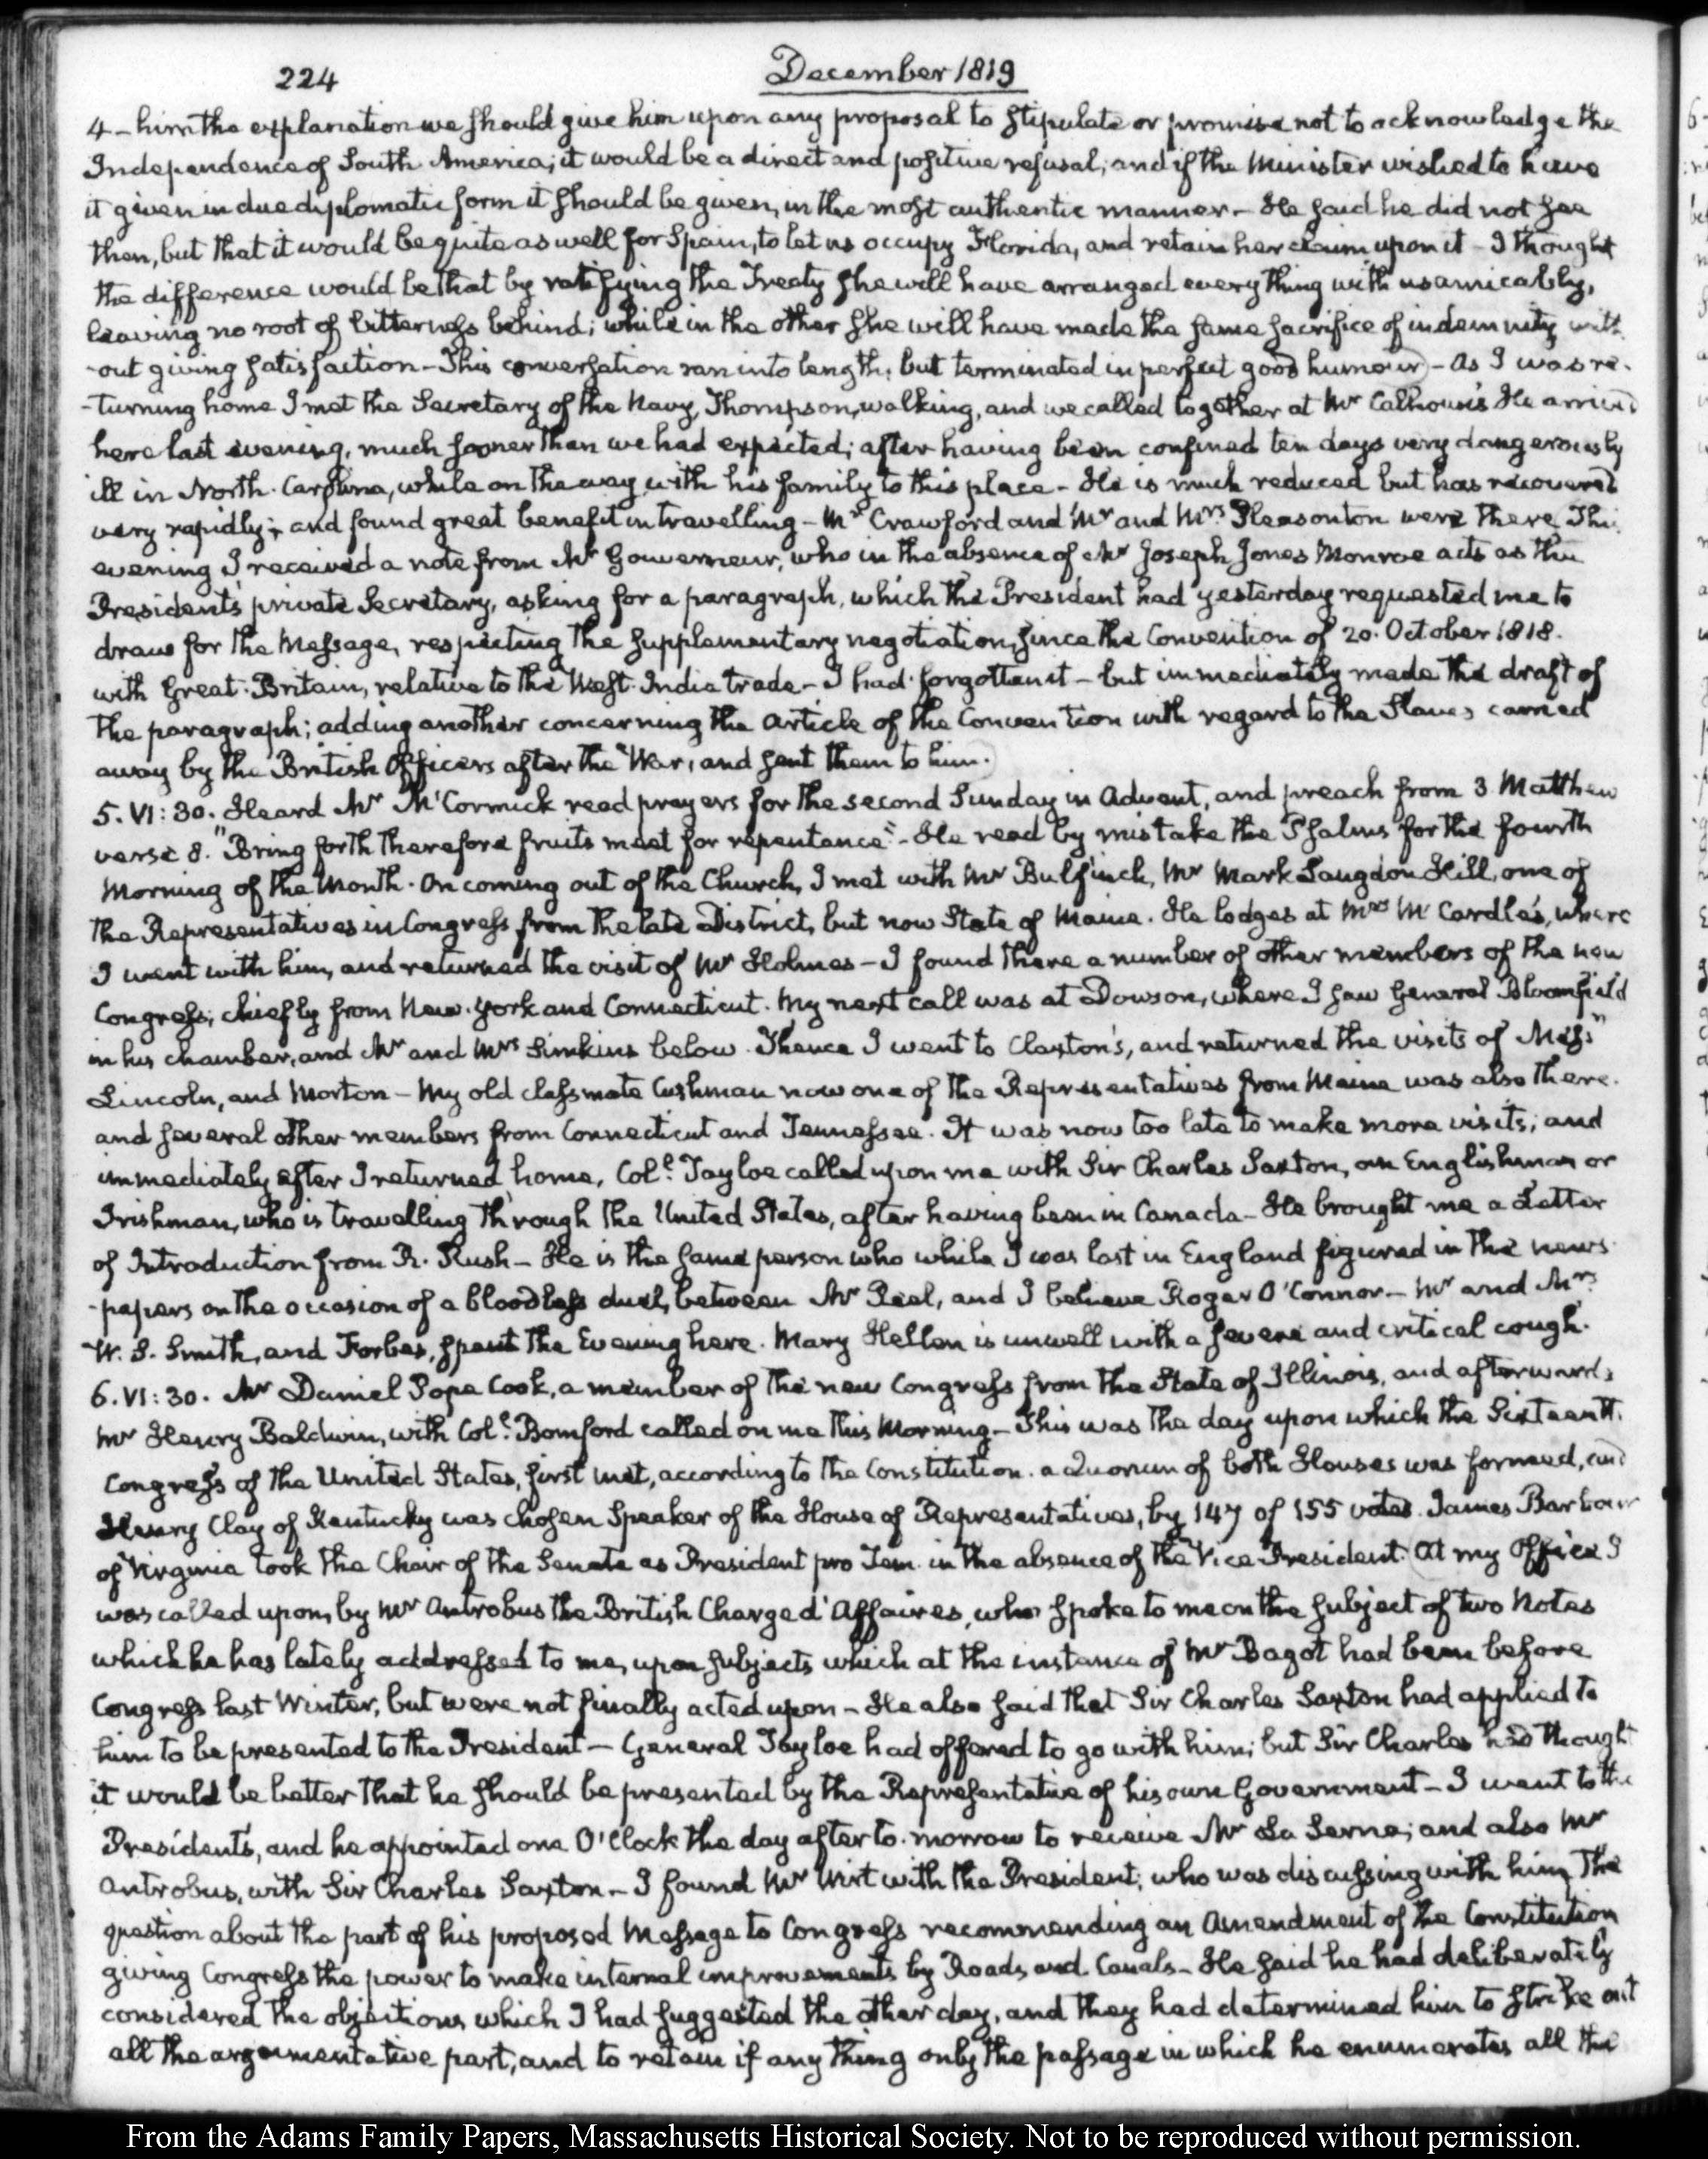 224
December 1819
4 - him the explanation we should give him upon any proposal to stipulate or promise not to acknowledge the
Independence of South America; it would be a direct and positive refusal; and if the Minister wished to have
it given in due diplomatic form it should be given, in the most authentic manner - He said he did not see
then, but that it would be quite as well for Spain, to let us occupy Florida, and retain her claim upon it - I thought
the difference would be that by ratifying the Treaty she will have arranged every thing with us amicably,
leaving no root of bitterness behind; while in the other she will have made the same sacrifice of indemnity with
-out giving satisfaction - This conversation ran into length, but terminated in perfect good humour - As I was re-
-turning home I met the Secretary of the Navy, Thompson, walking, and we called together at Mr Calhoun's He arrived
here last evening, much sooner than we had expected; after having been confined ten days very dangerously
ill in North-Carolina, while on the way with his family to this place - He is much reduced but has recovered
very rapidly; and found great benefit in travelling - Mr Crawford and Mr and Mrs Pleasonton were there This
evening I received a note from Mr Gouverneur, who in the absence of Mr Joseph Jones Monroe acts as the
President's private Secretary, asking for a paragraph, which the President had yesterday requested me to
draw for the Message, respecting the supplementary negotiation, since the Convention of 20. October 1818.
with Great-Britain, relative to the West-India trade - I had forgotten it - but immediately made the draft of
the paragraph; adding another concerning the Article of the Convention with regard to the Slaves carried
away by the British Officers after the War, and sent them to him.
5. VI:30. Heard Mr McCormick read prayers for the second Sunday in Advent, and preach from 3 Matthew
verse 8. "Bring forth therefore fruits meet for repentance" - He read by mistake the Psalms for the fourth
Morning of the Month. On coming out of the Church, I met with Mr Bulfinch, Mr Mark Langdon Hill, one of
the Representatives in Congress from the late District, but now State of Maine. He lodges at Mrs McCardle's, where
I went with him, and returned the visit of Mr Holmes - I found there a number of other members of the new
Congress, chiefly from New-York and Connecticut. My next call was at Dowson, where I saw General Bloomfield
in his chamber, and Mr and Mrs Simkins below. Thence I went to Claxton's, and returned the visits of Messrs
Lincoln, and Morton - My old classmate Cushman now one of the Representatives from Maine was also there.
and several other members from Connecticut and Tennessee. It was now too late to make more visits; and
immediately after I returned home, Coll. Tayloe called upon me with Sir Charles Saxton, an Englishman or
Irishman, who is travelling through the United States, after having been in Canada - He brought me a Letter
of Introduction from R. Rush - He is the same person who while I was last in England figured in the news-
-papers on the occasion of a bloodless duel, between Mr Peel, and I believe Roger O'Connor - Mr and Mrs
W. S. Smith, and Forbes, spent the Evening here. Mary Hellen is unwell with a severe and critical cough.
6. VI:30. Mr Daniel Pope Cook, a member of the new Congress from the State of Illinois, and afterwards
Mr Henry Baldwin, with Coll. Bomford called on me this Morning - This was the day upon which the Sixteenth
Congress of the United States, first met, according to the Constitution. a Quorum of both Houses was formed, and
Henry Clay of Kentucky was chosen Speaker of the House of Representatives, by 147 of 155 votes. James Barbour
of Virginia took the Chair of the Senate as President pro Tem. in the absence of the Vice-President. At my Office I
was called upon, by Mr Antrobus the British Chargé d'Affaires, who spoke to me on the subject of two Notes
which he has lately addressed to me, upon subjects which at the instance of Mr Bagot had been before
Congress last Winter, but were not finally acted upon - He also said that Sir Charles Saxton had applied to
him to be presented to the President - General Tayloe had offered to go with him; but Sir Charles had thought
it would be better that he should be presented by the Representative of his own Government - I went to the
President's, and he appointed one O'Clock the day after to-morrow to receive Mr La Serna; and also Mr
Antrobus, with Sir Charles Saxton - I found Mr Wirt with the President; who was discussing with him, the
question about the part of his proposed Message to Congress recommending an Amendment of the Constitution
giving Congress the power to make internal improvements by Roads and Canals - He said he had deliberately
considered the objections which I had suggested the other day, and they had determined him to strike out
all the argumentative part, and to retain if any thing only the passage in which he enumerates all the
From the Adams Family Papers, Massachusetts Historical Society. Not to be reproduced without permission.